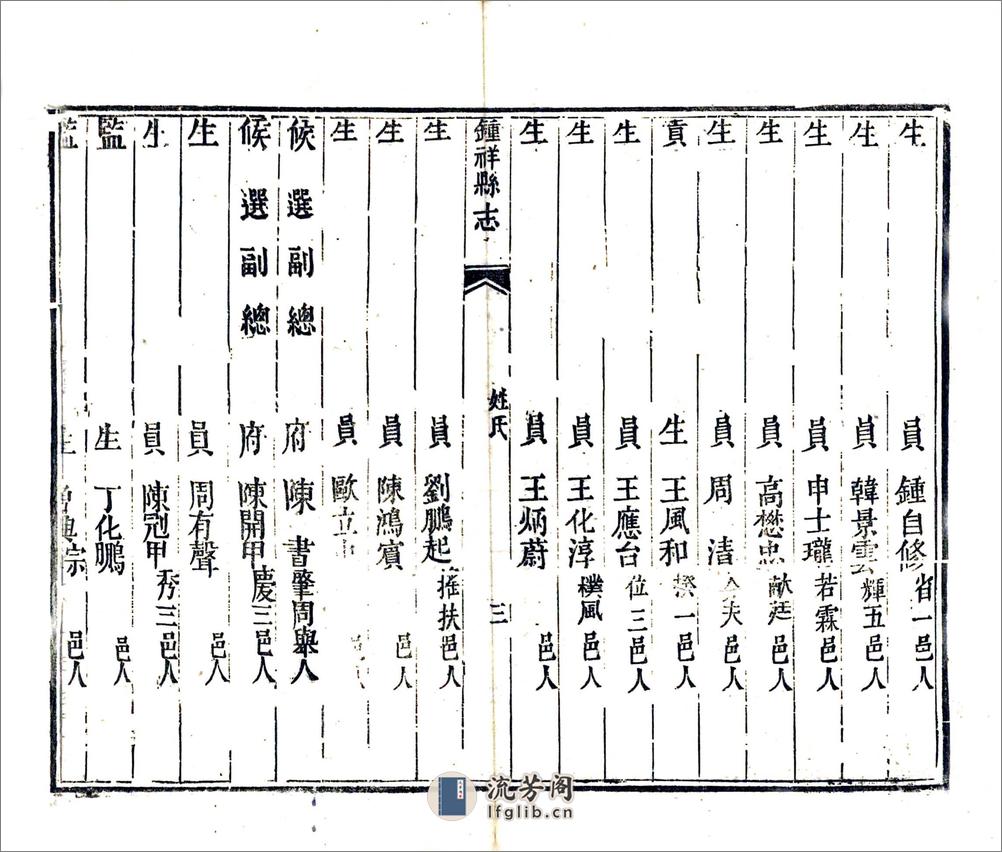 生員鍾自修省一邑人
生員韓景雲輝五邑人
生員申士瓏若霖邑人
生員高懋忠獻廷邑人
生員周 洁夫邑人
貢生王風和一邑人
生員王應台位三邑人
生員王化淳樸風邑人
生員王炳蔚邑人
鍾祥縣志 姓氏 三
生員劉鵬起摧扶邑人
生員陳鴻賓邑人
生員歐立
候選副總府陳 書肇周舉人
候選副總府陳開甲慶三邑人
生員周有聲邑人
生員陳冠甲秀三邑人
監生丁化鵬邑人
監生典宗邑人
流芳阁
lfglib.cn